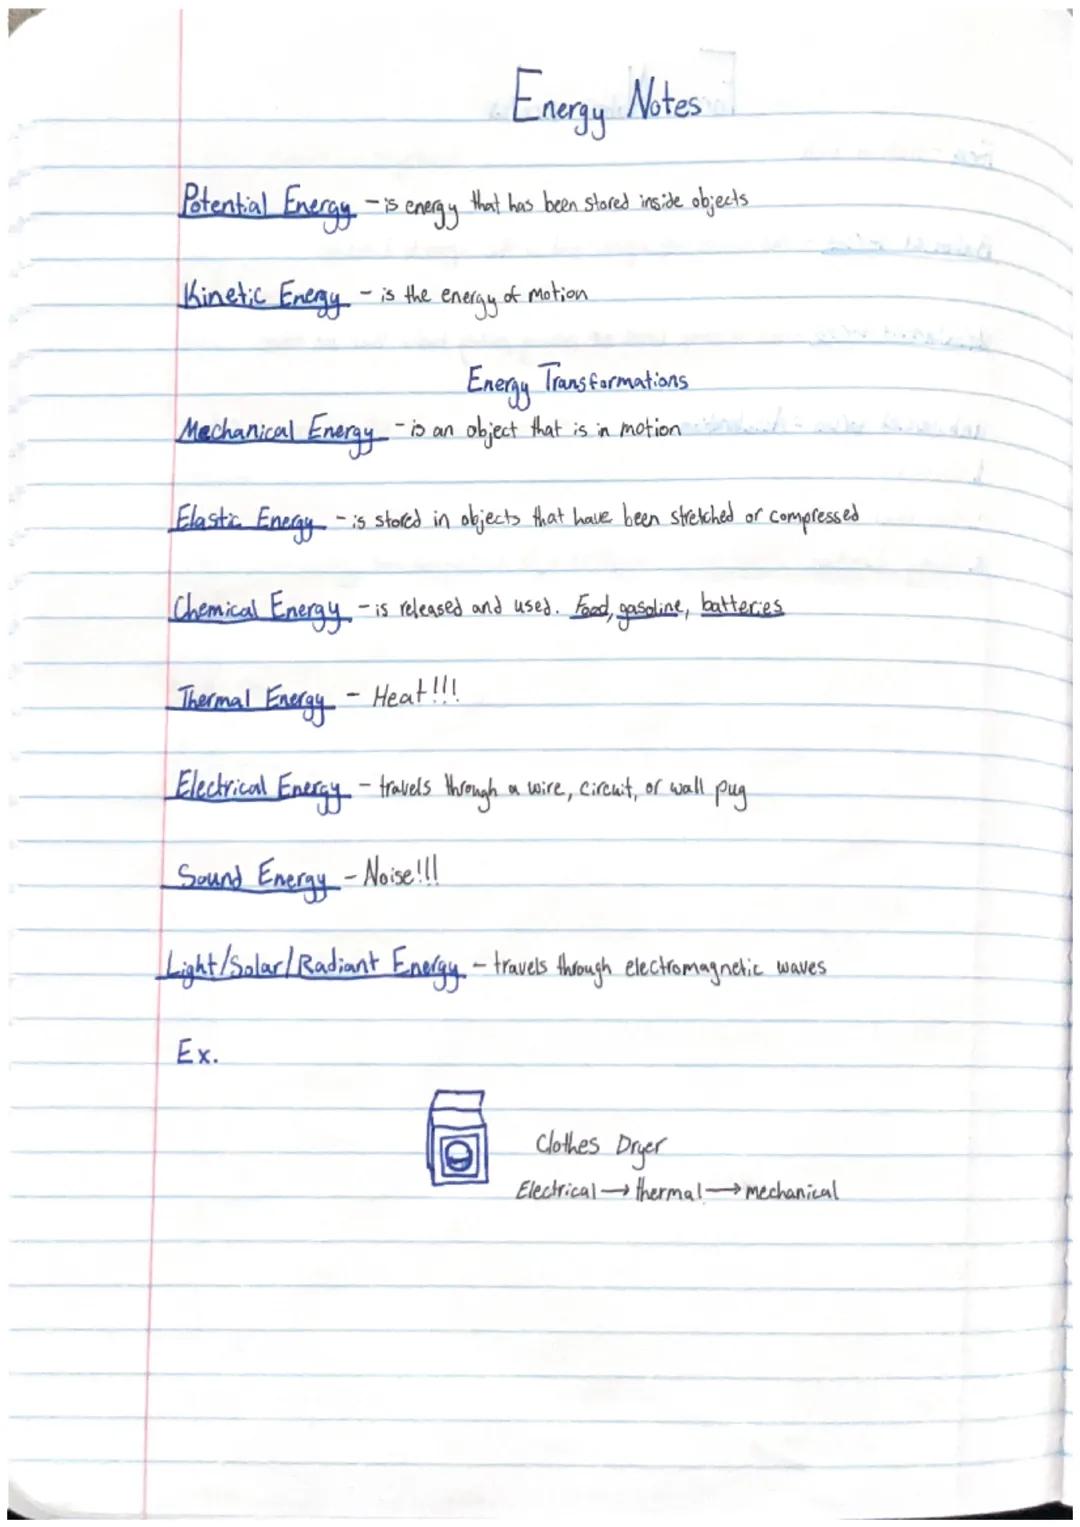 Energy Notes
Potential Energy - is energy that has been stored inside objects
Kinetic Energy - is the energy of motion
Energy Transformations
Mechanical Energy - is an object that is in motion
Elastic Energy - is stored in objects that have been stretched or compressed
Chemical Energy - is released and used. Food, gasoline, batteries
Thermal Energy - Heat!!!
Electrical Energy - travels through a wire, circuit, or wall pug
Sound Energy - Noise!!!
Light/Solar/Radiant Energy - travels through electromagnetic waves
Ex.
Clothes Dryer
Electrical → thermal → mechanical